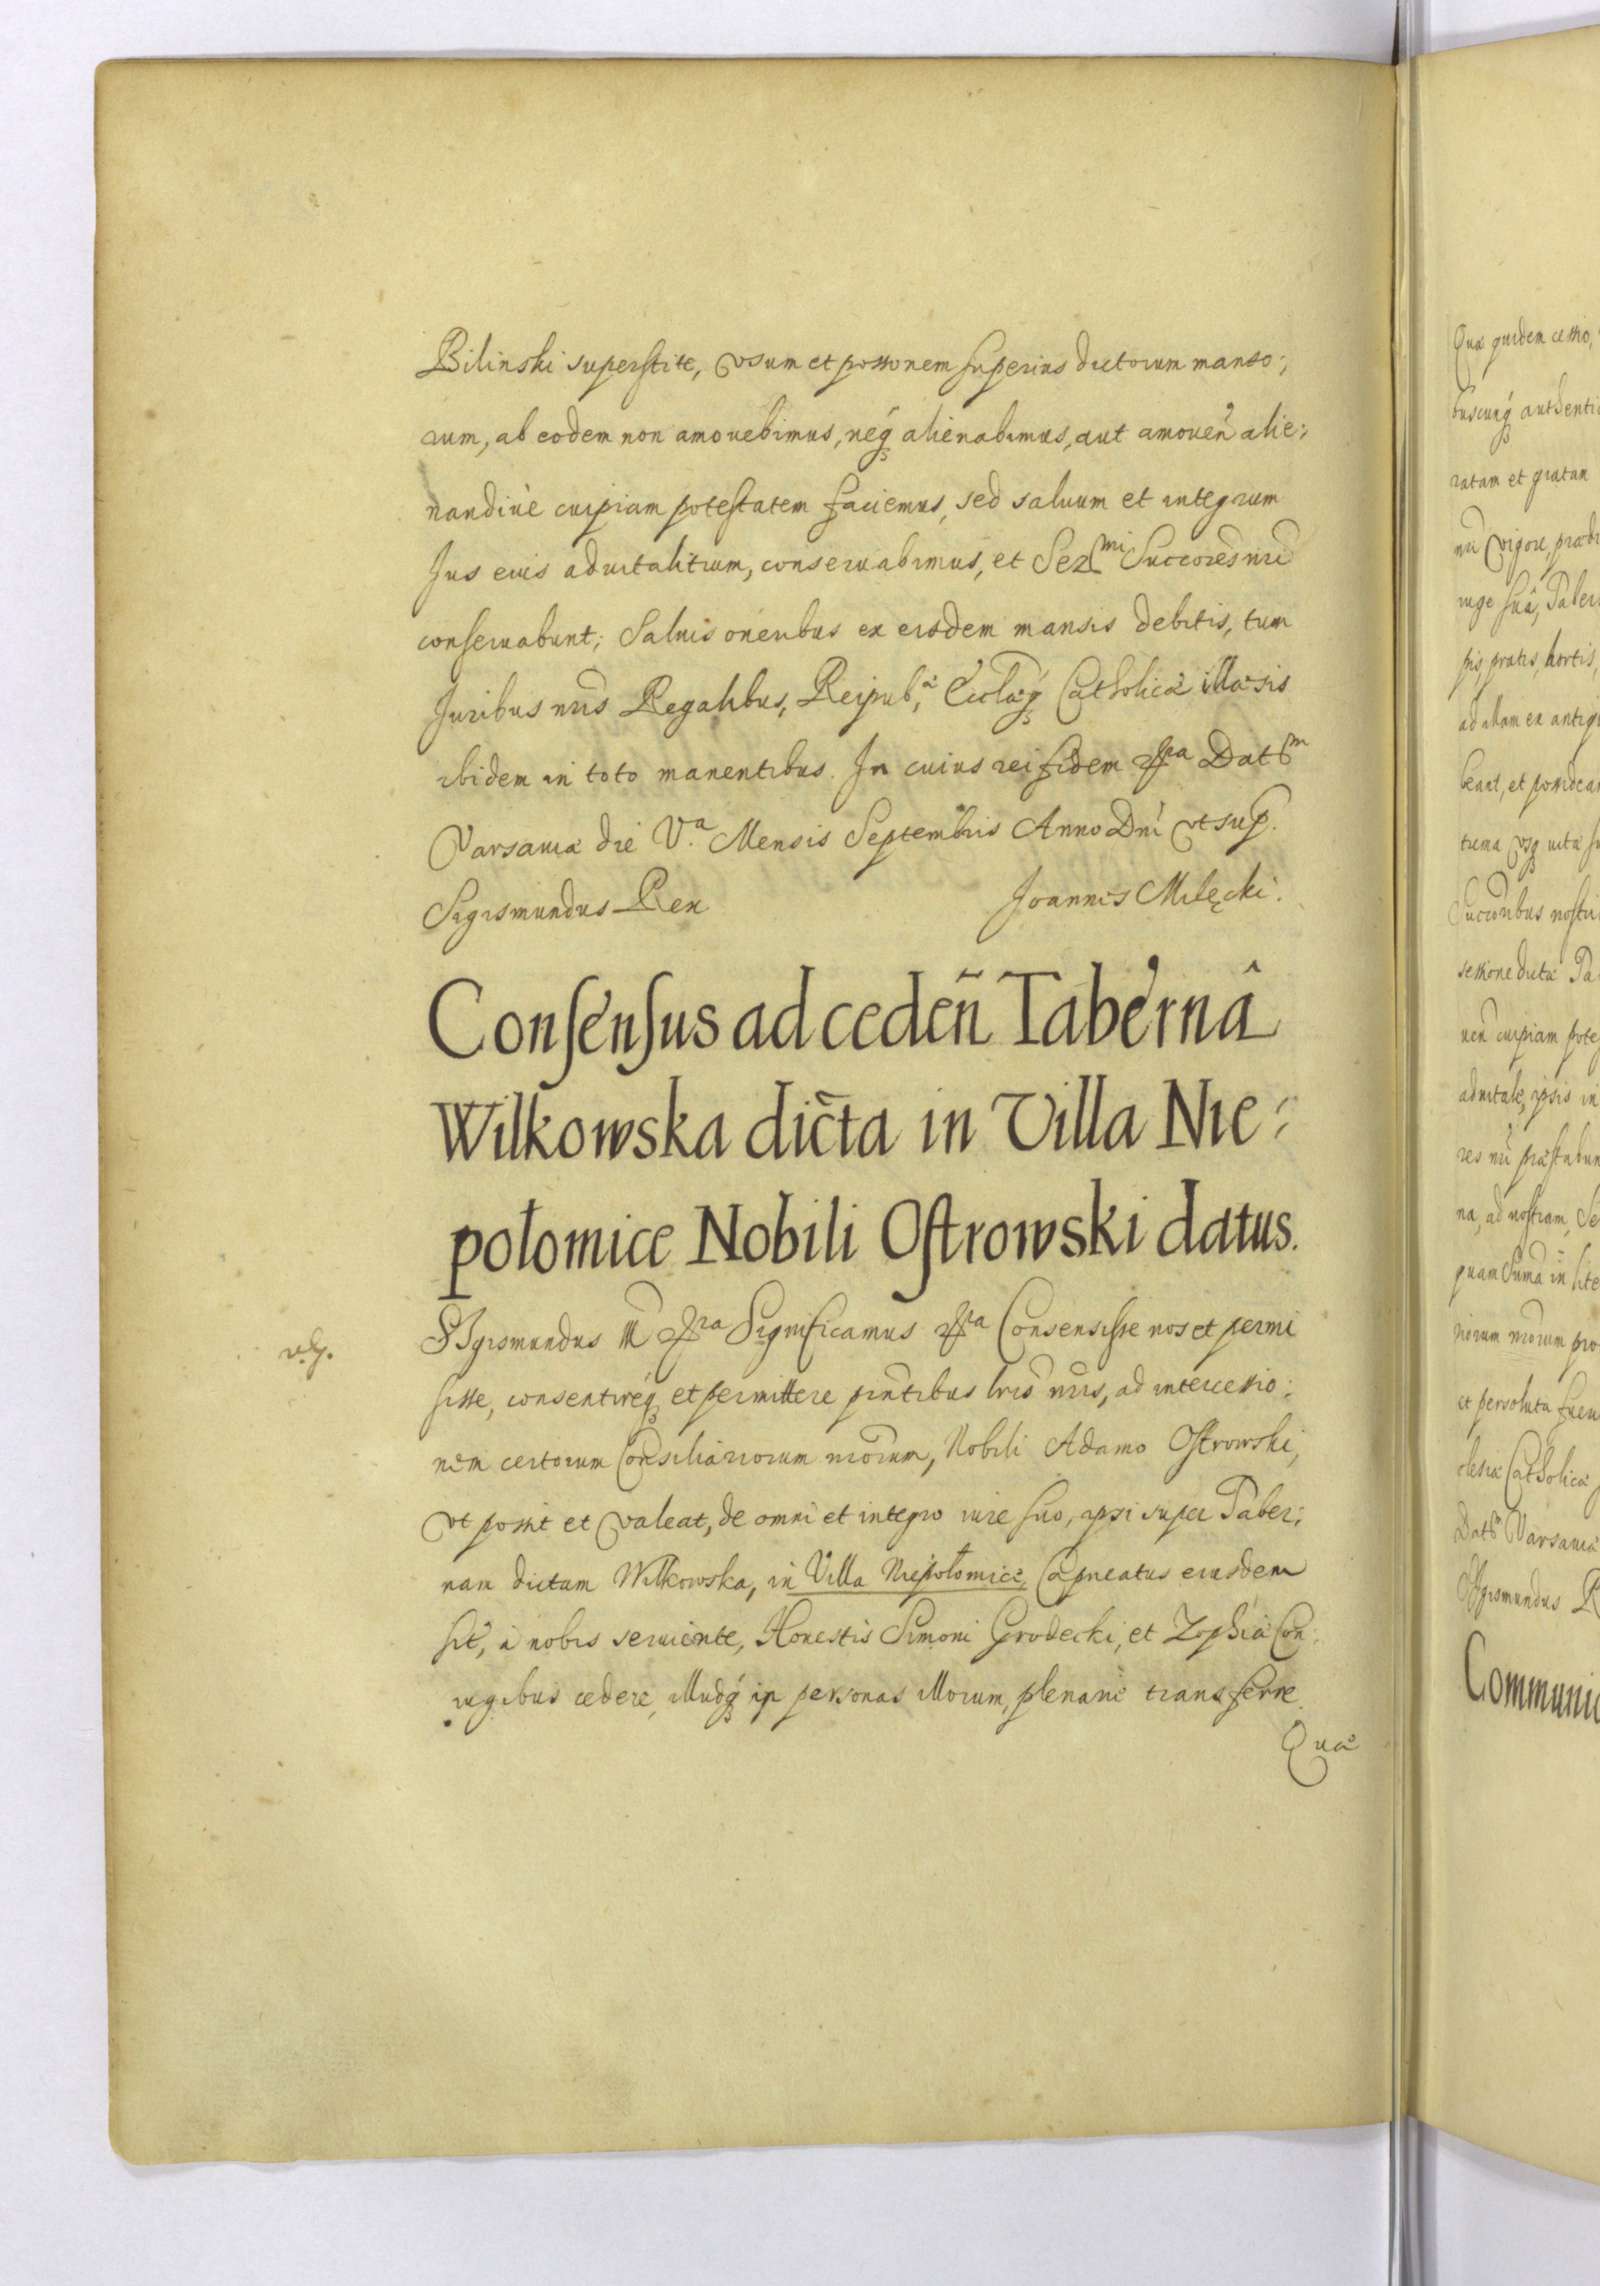 Bilinski superstite, vsum et possonem superius dictorum manso:
rum, ab eodem non amouebimus, neq alienabimus, aut amoueñ alie:
nandiuè cuipiam potestatem faciemus, sed saluum et integrum
Jus eius aduitalitium, conseruabimus, et Ser^mi Succores nri
conseruabunt; Saluis oneribus ex eisdem mansis debitis, tum
Juribus nris Regalibus, Reipub^æ, Ecclæq Catholicæ illæsis
ibidem in toto manentibus. In cuius rei fidem &^ra Dat^m
Varsauiæ die V.^a Mensis Septembris Anno Dni vt sup.
Sigismundus Rex Joannes Milęcki.
Consensus ad cedeñ Tabernâ
Wilkowska dicta in Villa Nie:
połomice Nobili Ostrowski datus.
v.g.
SIgismundus III &^ra Significamus &^ra Consensisse nos et permi
sisse, consentireq et permittere pntibus lris nris, ad intercessio:
nem certorum Consiliariorum nrorum, Nobili Adamo Ostrowski,
vt possit et valeat, de omni et integro iure suo, ipsi super Taber:
nam dictam Wilkowska, in Villa Niepołomice, Capneatus eiusdem
sit, à nobis seruiente, Honestis Simoni Grodecki, et Zophiæ Con:
iugibus cedere, illudq in personas illorum, plenariè transferre.
Quæ
Quæ quidem cessio,
buscunq authenti
ratam et gratam
nri vigore, prædi
iuge suâ, Taber
pis, pratis, hortis,
ad illam ex antiq
beant, et possidea
trema vsq vitæ su
Succoribus nostri
sessione dictæ Ta
uen cuipiam pote
aduitale, ipsis in
res nri præstabun
na, ad nostram, Se
quam Summa in lite
riorum nrorum pro
et persoluta fueri
clesiæ Catholicæ
Dat^m Varsauiæ
Sigismundus R
Communic